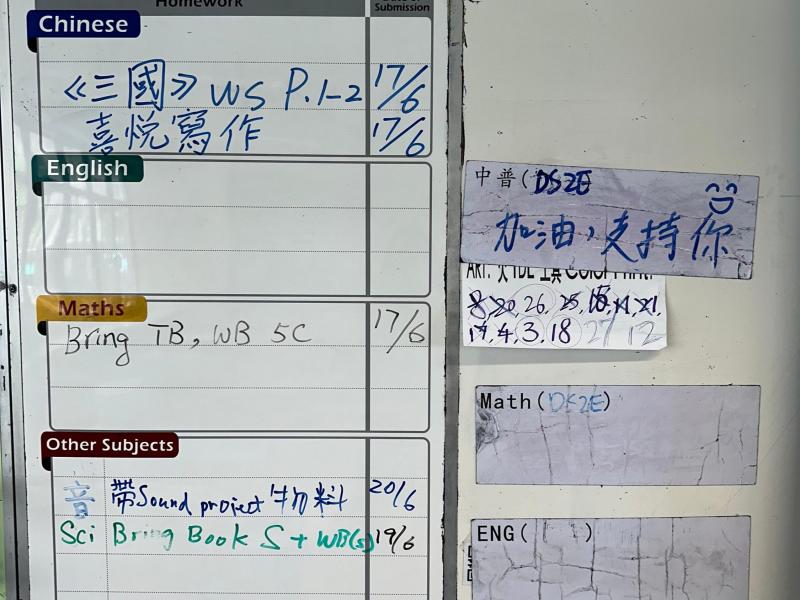 Homework
Submission
Chinese
《三國》 WS P.1-2 17/6
喜悅寫作 17/6
English
Maths
Bring TB, WB 5C 17/6
Other Subjects
音 帶Sound project 物料 20/6
Sci Bring Book 5 + WB(s) 19/6
中普(DS2E
加油，支持你
8, 20, 26, 25, 15, 11, 21,
19, 4, 3, 18 27 12
Math(DS2E)
ENG( )